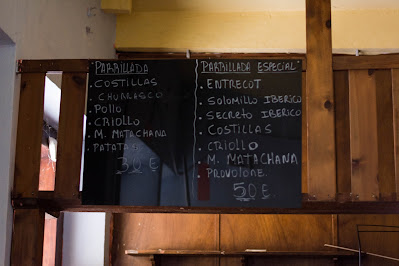 PARRILLADA
• COSTILLAS
• CHURRASCO
• POLLO
• CRIOLLO
• M. MATACHANA
• PATATAS
30€
PARRILLADA ESPECIAL
• ENTRECOT
• SOLOMILLO IBERICO
• SECRETO IBERICO
• COSTILLAS
• CRIOLLO
• M. MATACHANA
• PROVOLONE
50€